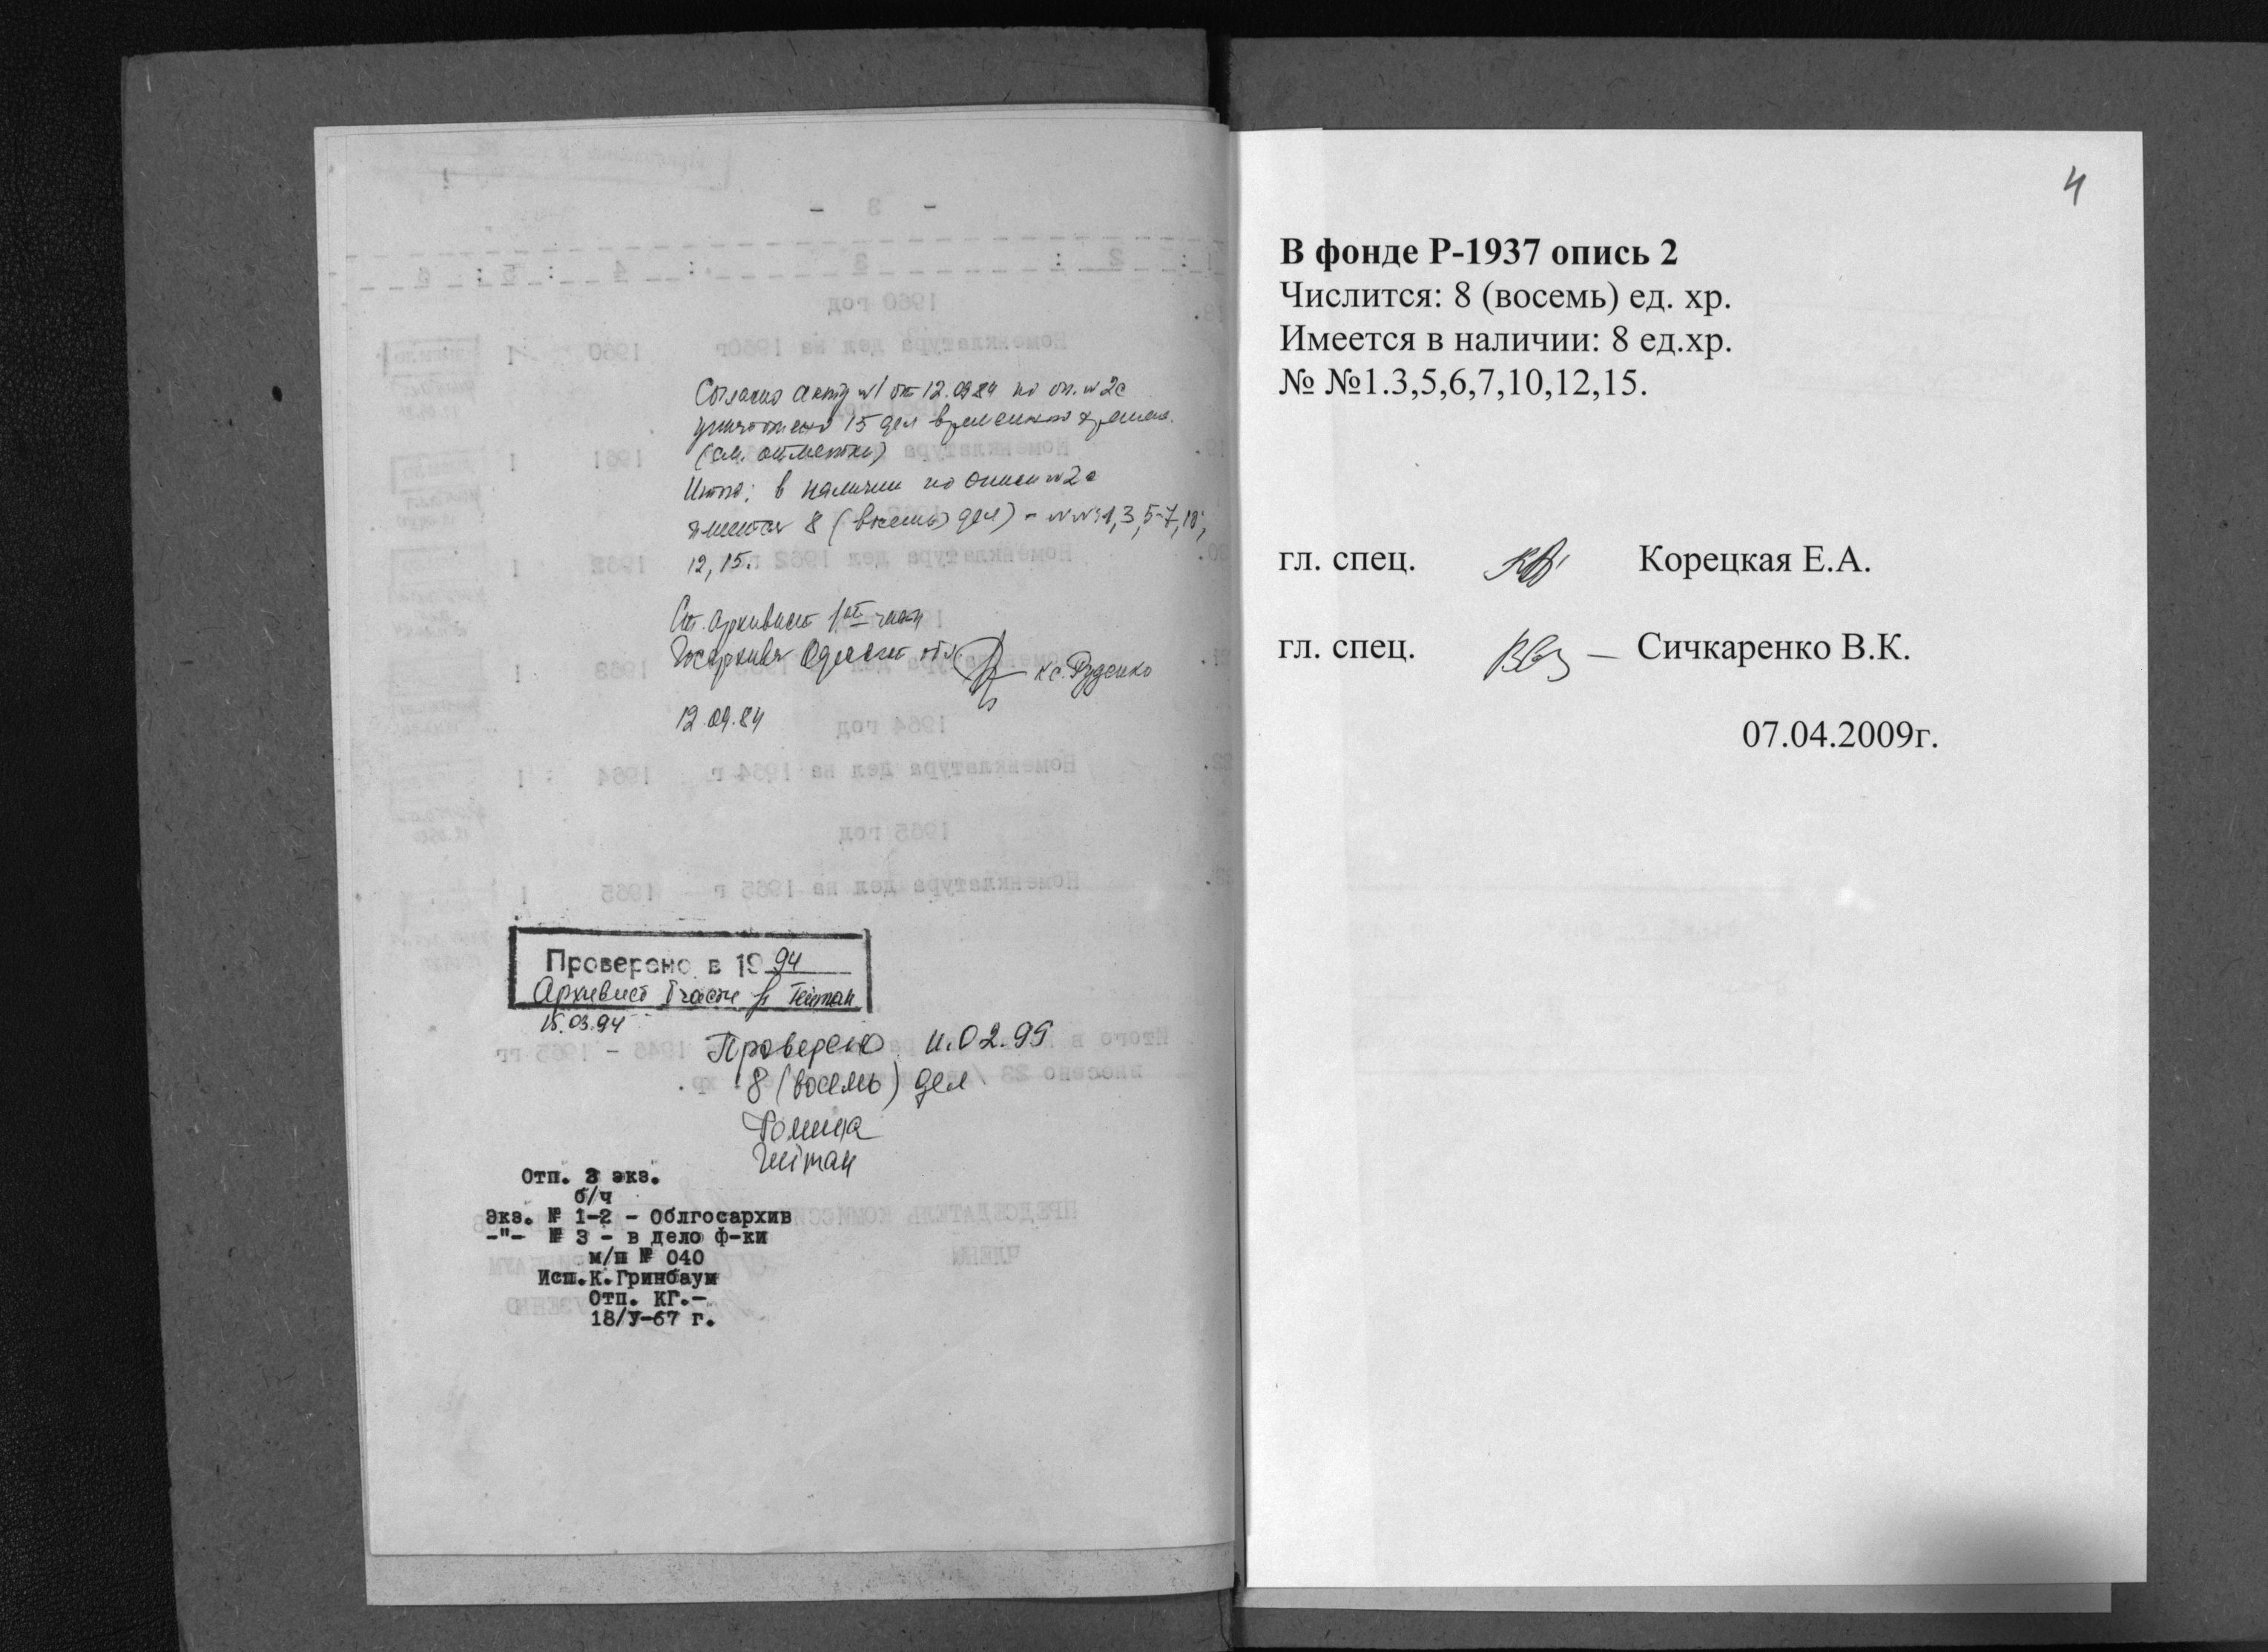 Согласно акту №1 от 12.09.84 по оп. №2с
уничтожено 15 дел временного хранен.
(см. отметки)
Итого: в наличии по описи №2с
имеется 8 (восемь) дел) - №№ 1, 3, 5-7, 10,
12, 15.
Ст. архивист 1ой части
Госархива Одесской обл. К.С. Руденко
12.09.84
Проверено в 1994
Архивист Iчасти Гейтан
15.03.94
Проверено 11.02.99
8 (восемь) дел
Гейтан
Отп. 3 экз.
б/ч
Экз. № 1-2 - Облгосархив
-"- № 3 - в дело ф-ки
м/п № 040
Исп.К.Гринбаум
Отп. КГ.-
18/У-67 г.
4
В фонде Р-1937 опись 2
Числится: 8 (восемь) ед. хр.
Имеется в наличии: 8 ед.хр.
№ №1.3,5,6,7,10,12,15.
гл. спец. Корецкая Е.А.
гл. спец. Сичкаренко В.К.
07.04.2009г.